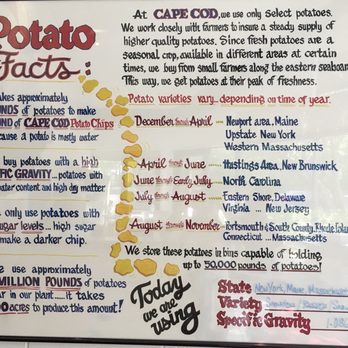 Potato
Facts:
approximately
of potatoes to make
of CAPE COD Potato Chips
a potato is mostly water
buy potatoes with a high
GRAVITY... potatoes with
content and high dry matter
only use potatoes with
levels... high sugar
make a darker chip.
use approximately
MILLION POUNDS of potatoes
in our plant... it takes
to produce this amount!
At CAPE COD, we use only select potatoes.
We work closely with farmers to insure a steady supply of
higher quality potatoes. Since fresh potatoes are a
seasonal crop, available in different areas at certain
times, we buy from small farmers along the eastern seaboard
This way, we get potatoes at their peak of freshness.
Potato varieties vary... depending on time of year.
December through April Newport area, Maine
Upstate New York
Western Massachusetts
April through June Hastings Area, New Brunswick
June through Early July North Carolina
July through August Eastern Shore, Delaware
Virginia ... New Jersey
August through November Portsmouth & South County, Rhode Island
Connecticut ... Massachusetts
We store these potatoes in bins capable of holding
up to 50,000 pounds of potatoes!
Today
we are
using
State New York, Maine, Massachusetts
Variety
Specific Gravity